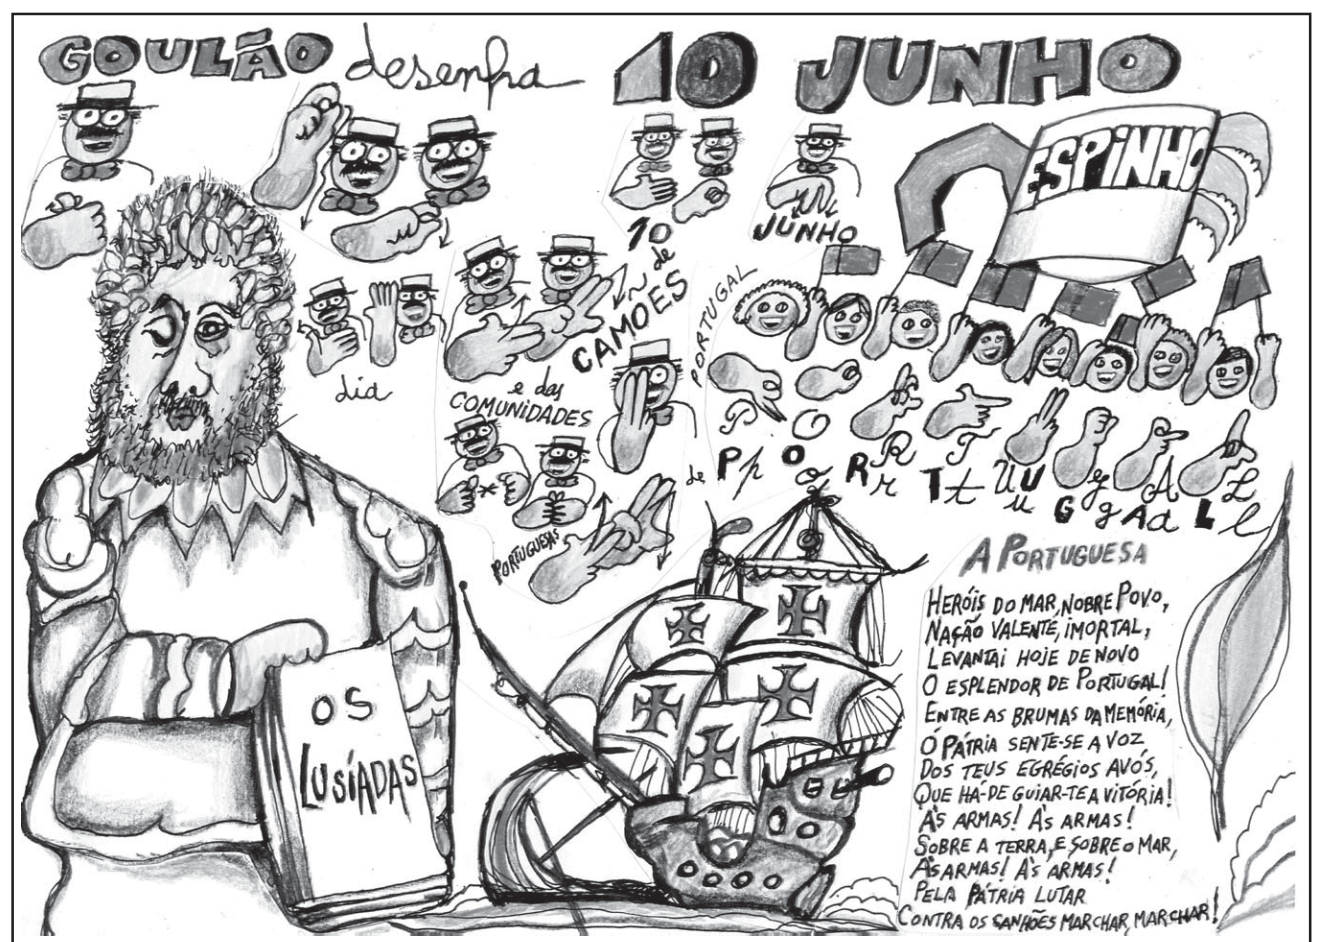 GOULÃO desenha 10 JUNHO
ESPINHO
10
JUNHO
de
CAMÕES
PORTUGAL
dia
e das
COMUNIDADES
PORTUGUESAS
de
P O R T U G A L
P p O o R r T t U u G g A a L l
A PORTUGUESA
HERÓIS DO MAR, NOBRE POVO,
NAÇÃO VALENTE, IMORTAL,
LEVANTAI HOJE DE NOVO
O ESPLENDOR DE PORTUGAL!
ENTRE AS BRUMAS DA MEMÓRIA,
Ó PÁTRIA SENTE-SE A VOZ
DOS TEUS EGRÉGIOS AVÓS,
QUE HÁ-DE GUIAR-TE A VITÓRIA!
ÀS ARMAS! ÀS ARMAS!
SOBRE A TERRA, E SOBRE O MAR,
ÀS ARMAS! ÀS ARMAS!
PELA PÁTRIA LUTAR
CONTRA OS CANHÕES MARCHAR, MARCHAR!
OS
LUSÍADAS